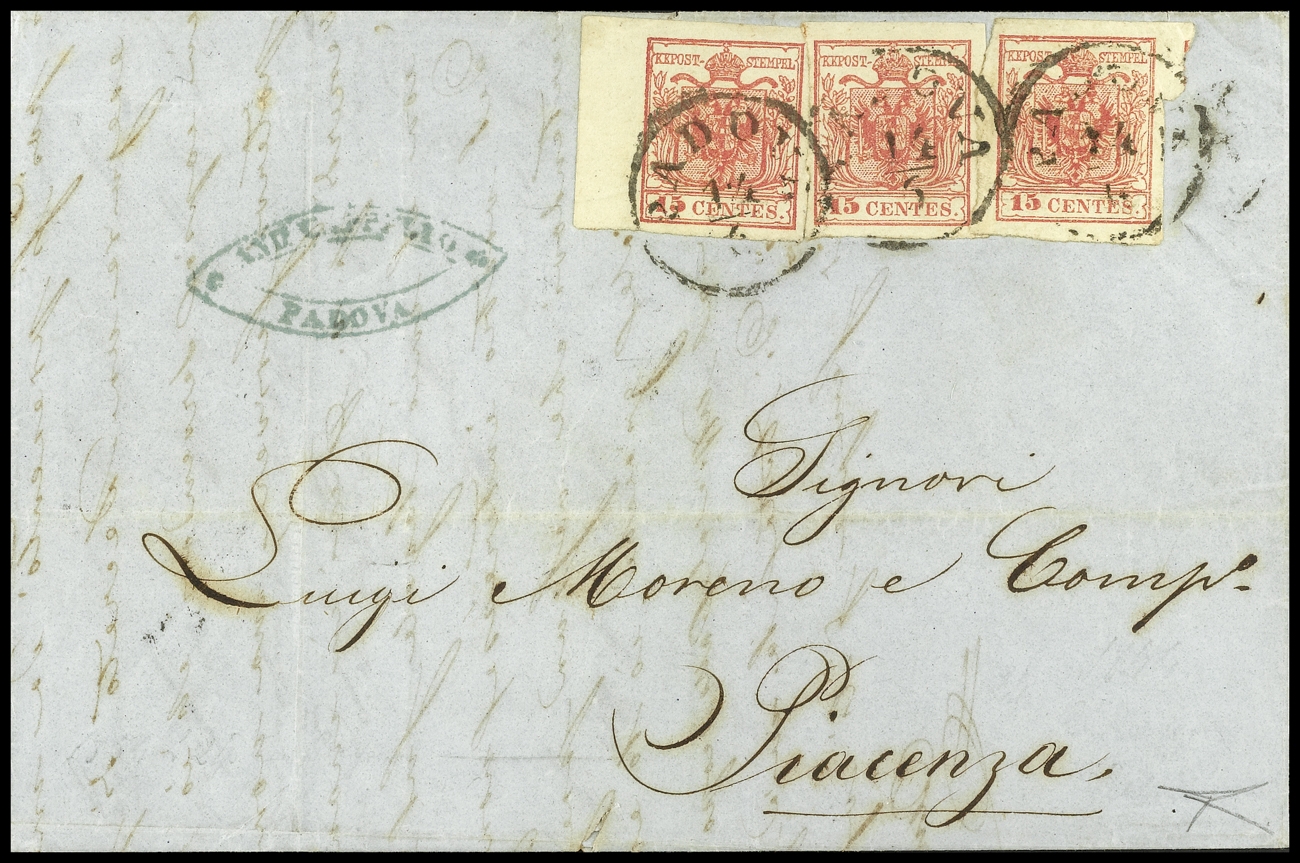 KKPOST-STEMPEL
15 CENTES.
KKPOST-STEMPEL
15 CENTES.
KKPOST-STEMPEL
15 CENTES.
PADOVA
14
PADOVA
14
5
PADOVA
14
PADOVA
Signori
Luigi Moreno e Comp.º
Piacenza.